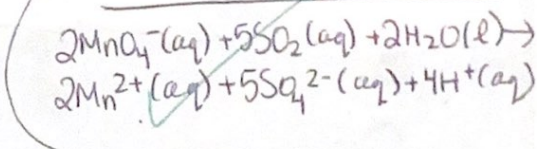 2MnO₄⁻(aq) + 5SO₂(aq) + 2H₂O(l) →
2Mn²⁺(aq) + 5SO₄²⁻(aq) + 4H⁺(aq)